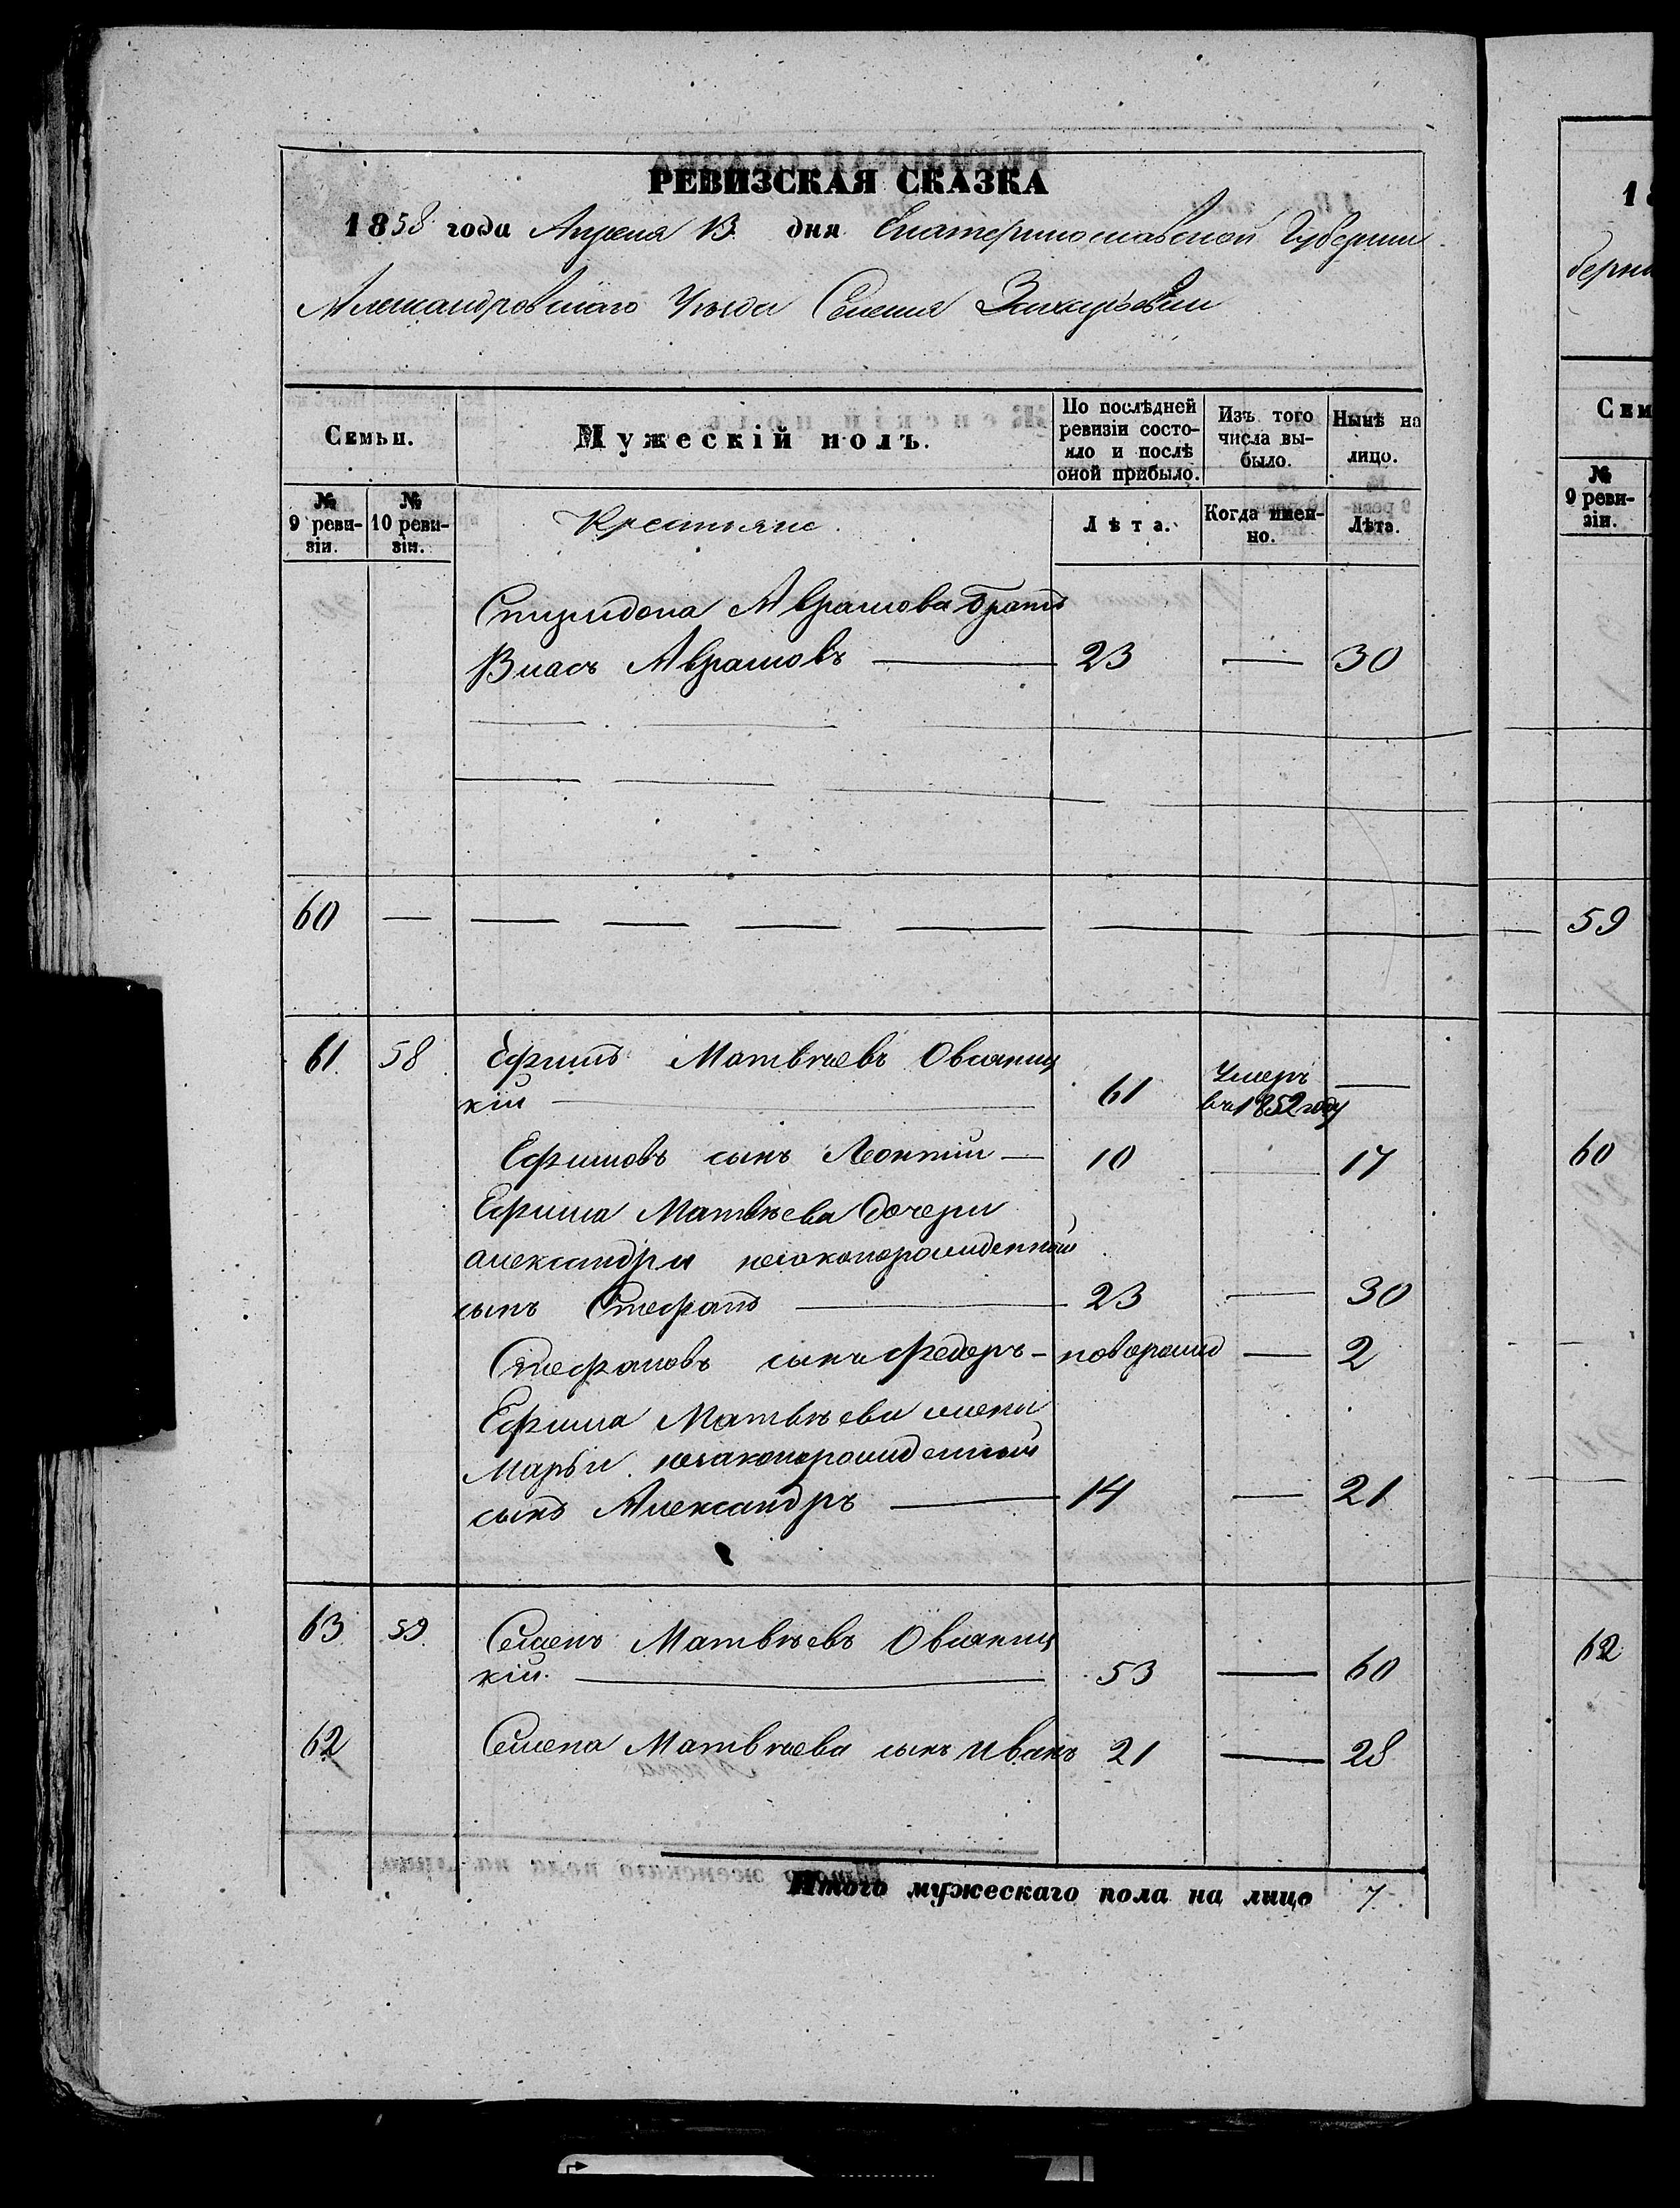 РЕВИЗСКАЯ СКАЗКА
1858 года Апреля 13 дня Екатеринославской Губернии
Александровскаго Уѣзда Селения Захарьевки
Семьи.
Мужескій полъ.
По послѣдней ревизіи состояло и послѣ оной прибыло.
Изъ того числа выбыло.
Нынѣ на лицо.
№ 9 ревизіи.
№ 10 ревизіи.
Крестьяне.
Лѣта.
Когда именно.
Лѣта.
Спиридона Аврамова братъ
Власъ Аврамовъ — 23 — 30
60 —
61 58 Ефимъ Матвѣевъ Овсяниц
кій — 61 Умеръ въ 1852 году —
Ефимовъ сынъ Леонтій — 10 — 17
Ефима Матвѣева дочери
александры незаконорожденный
сынъ Стефанъ — 23 — 30
Стефановъ сынъ Федоръ — новорожд — 2
Ефима Матвѣева жены
Марьи незаконорожденный
сынъ Александръ — 14 — 21
63 59 Семенъ Матвѣевъ Овсяниц
кій. — 53 — 60
62 Семена Матвѣева сынъ Иванъ 21 — 28
Итого мужескаго пола на лицо 7
18
берни
Сем
№ 9 ревизіи.
59
60
62